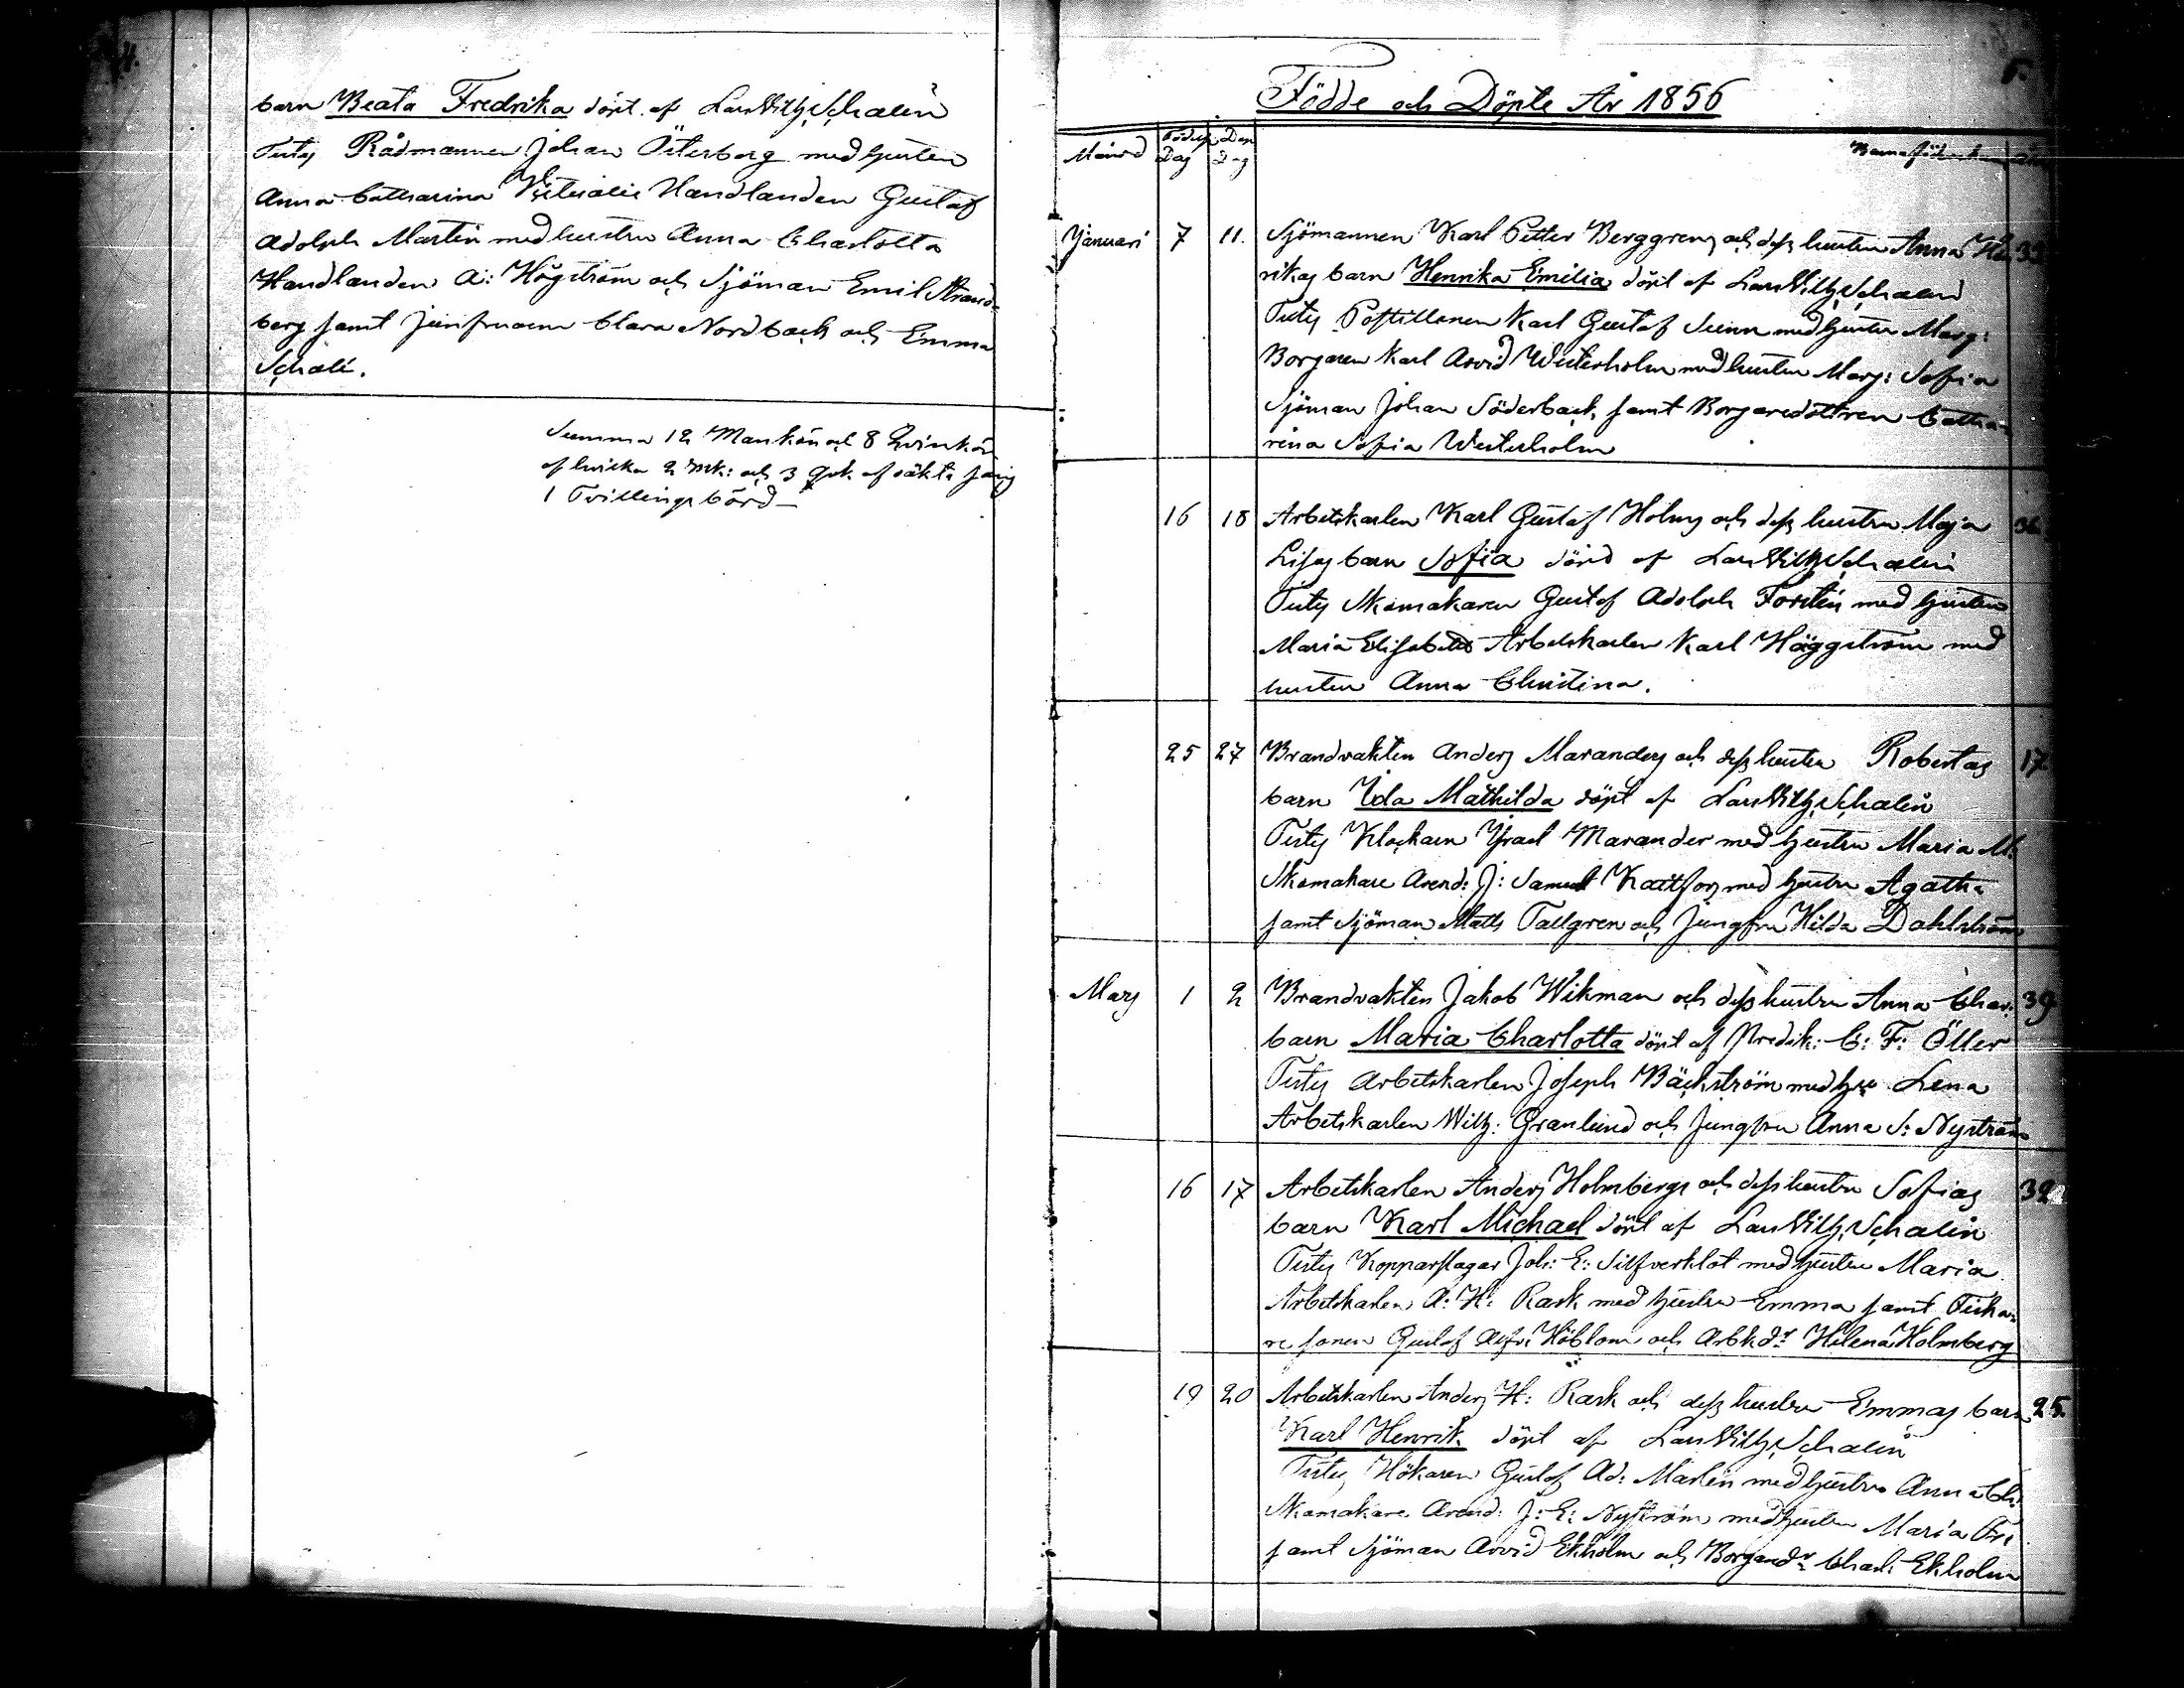 4.
barn Beata Fredrika döpt af Lars Vilh. Schalin
Testes Rådmannen Johan Österberg med hustru
Anna Catharina Handlanden Gustaf
Adolph Martin med hustru Anna Charlotta
Handlanden A: Högström och Sjöman Emil Strand-
berg samt Jumfruarne Clara Nordback och Emma
Schalé.
Summa 12 Mankön och 8 Qvinkön
af hvilka 2 mk: och 3 qvk. af oäkta säng
1 Tvillingsbörd –
5.
Födde och Döpte År 1856
Månad Födelse Dag Döp Dag
Januari 7 11. Sjömannen Karl Petter Berggrens och dess hustru Anna Hen- 32
rikas barn Henrika Emilia döpt af Lars Vilh. Schalin
Testes Postillonen Karl Gustaf med hustru Marg:
Borgaren Karl Arvid Westerholm med hustru Marg: Sofia
Sjöman Johan Söderback, samt Borgaredottren Catha-
rina Sofia Westerholm
16 18 Arbetskarlen Karl Gustaf Holms och dess hustru Maja 36
Lisas barn Sofia döpt af Lars Vilh. Schalin
Testes Skomakaren Gustaf Adolph Forstén med hustru
Maria Elisabeth Arbetskarlen Karl Häggström med
hustru Anna Christina.
25 27 Brandvakten Anders Maranders och dess hustru Robertas 17.
barn Ida Mathilda döpt af Lars Vilh. Schalin
Testes Klockaren Israel Marander med hustru Maria M.
Skomakare Arend: J: Samuel Kattfors med hustru Agatha
samt Sjöman Matts Tallgren och Jungfru Hilda Dahlström
Mars 1 2 Brandvakten Jakob Wikman och dess hustru Anna Char: 39
barn Maria Charlotta döpt af Predik: C: F: Öller
Testes Arbetskarlen Joseph Bäckström med Lena
Arbetskarlen Wilh: Granlund och Jungfru Anna S: Nyström
16 17 Arbetskarlen Anders Holmbergs och dess hustru Sofias 32
barn Karl Michael döpt af Lars Vilh. Schalin
Testes Kopparslagar Joh: E: Silfverklot med hustru Maria
Arbetskarlen A: H: Rask med hustru Emma samt Fiska-
re sonen Gustaf Alfr: Höblom och Arbkdr Helena Holmberg
19 20 Arbetskarlen Anders H: Rask och dess hustru Emmas barn 25.
Karl Henrik döpt af Lars Vilh. Schalin
Testes Hökaren Gustaf Ad: Martin med hustru Anna Ch:
Skomakare Arend: J: E: Nyström med hustru Maria Fr:
samt Sjöman Arvid Ekholm och Borgaredr Charl: Ekholm